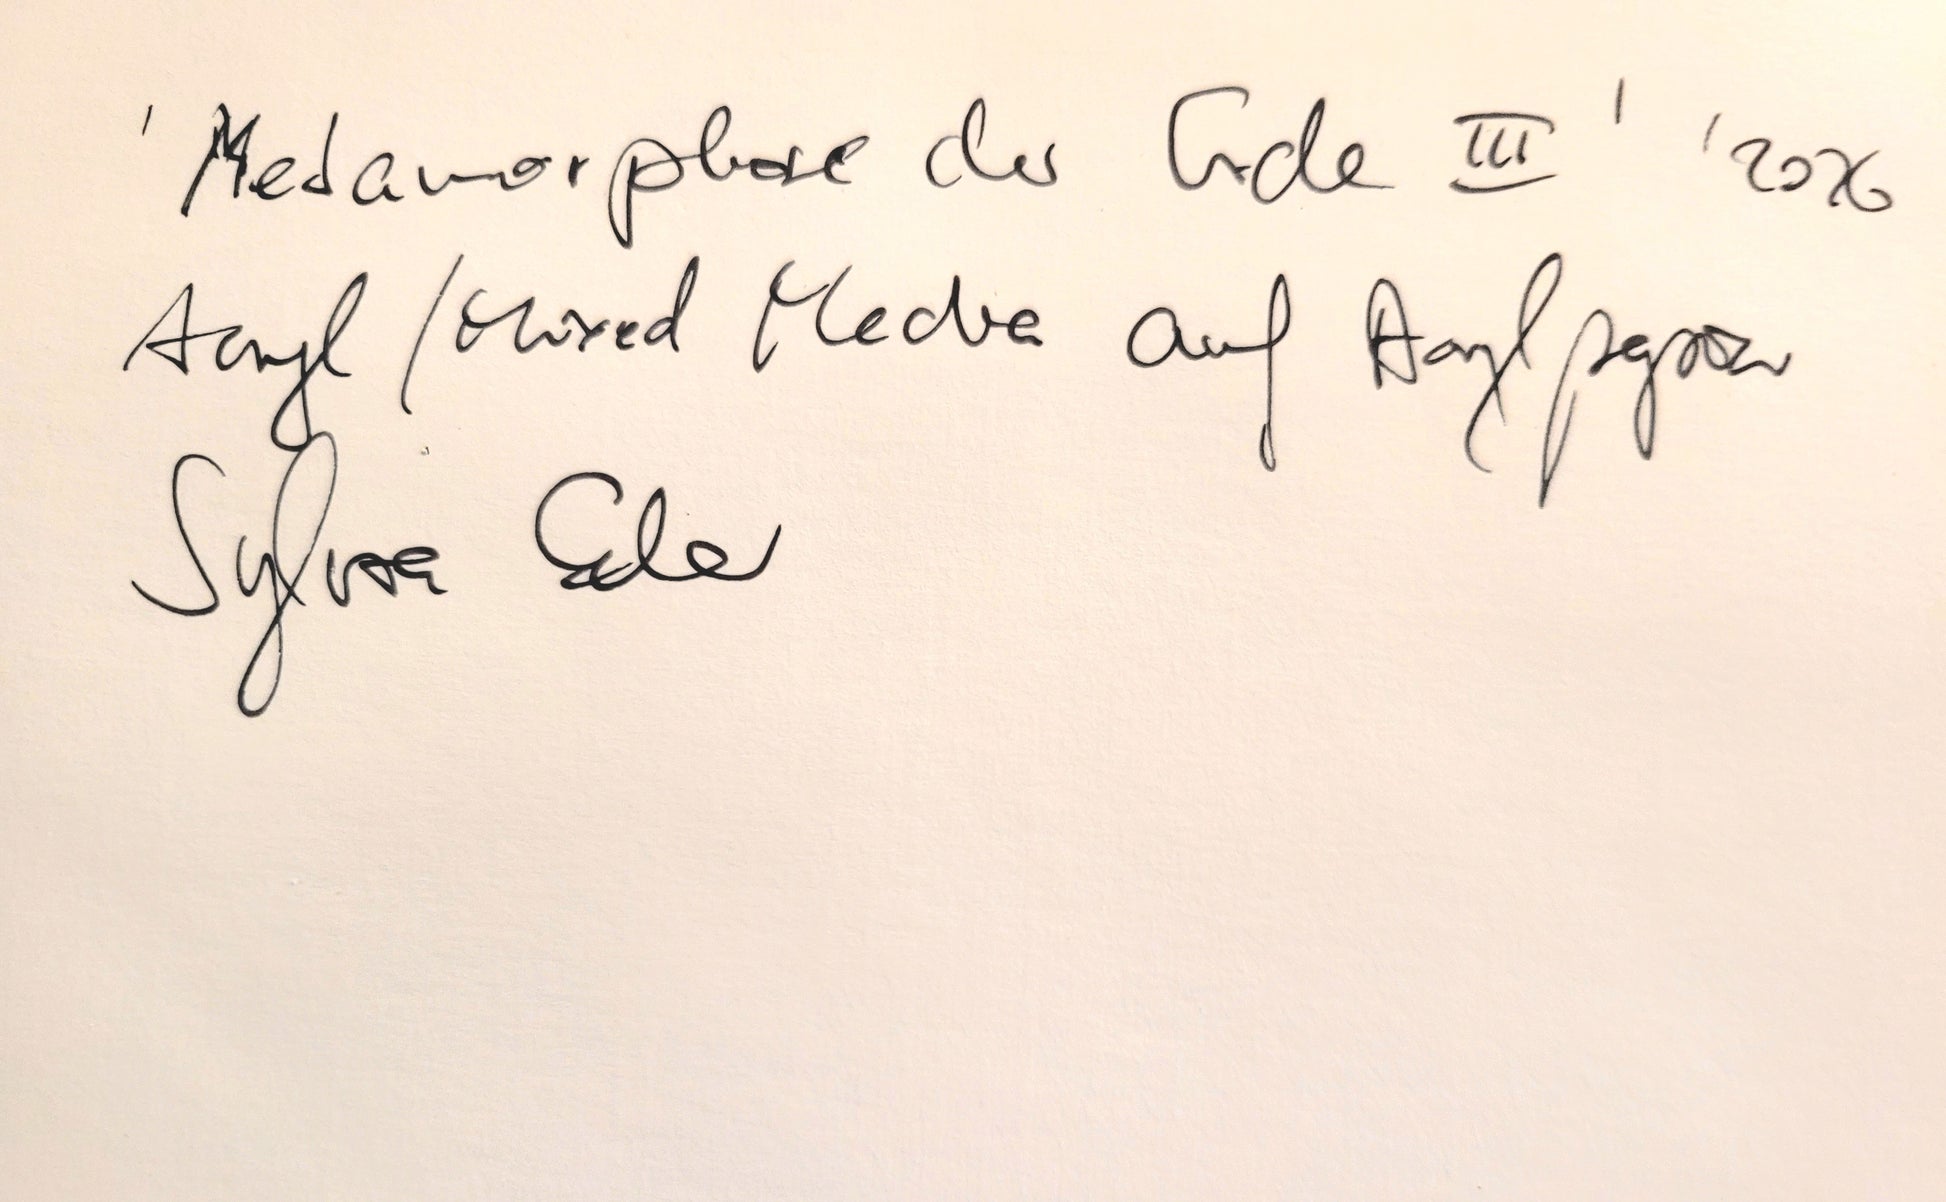 'Metamorphose der Erde III' '2026
Acryl / Mixed Media auf Acrylpapier
Sylvia Eder